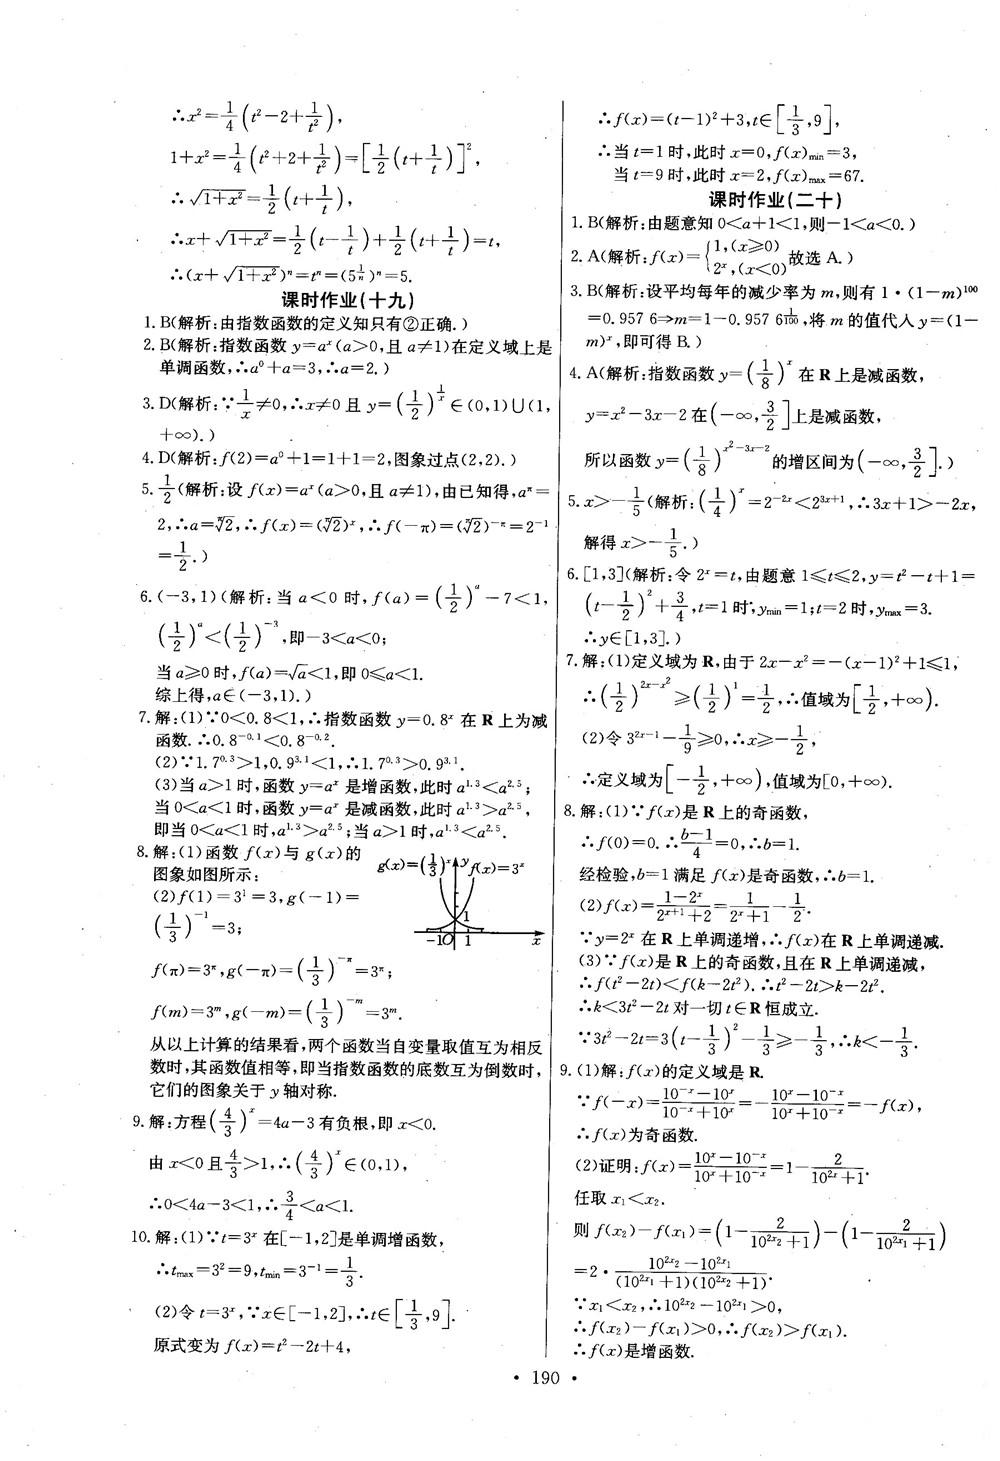 ∴x²=1/4(t²-2+1/t²),
1+x²=1/4(t²+2+1/t²)=[1/2(t+1/t)]²,
∴√(1+x²)=1/2(t+1/t),
∴x+√(1+x²)=1/2(t-1/t)+1/2(t+1/t)=t,
∴(x+√(1+x²))ⁿ=tⁿ=(5^(1/n))ⁿ=5.
课时作业(十九)
1.B(解析:由指数函数的定义知只有②正确.)
2.B(解析:指数函数 y=aˣ(a>0,且 a≠1)在定义域上是
单调函数,∴a⁰+a=3,∴a=2.)
3.D(解析:∵1/x≠0,∴x≠0 且 y=(1/2)^(1/x)∈(0,1)∪(1,
+∞).)
4.D(解析:f(2)=a⁰+1=1+1=2,图象过点(2,2).)
5.1/2(解析:设 f(x)=aˣ(a>0,且 a≠1),由已知得,a^π=
2,∴a=^π√2,∴f(x)=(^π√2)ˣ,∴f(-π)=(^π√2)^(-π)=2⁻¹
=1/2.)
6.(-3,1)(解析:当 a<0 时,f(a)=(1/2)^a-7<1,
(1/2)^a<(1/2)^(-3),即-3<a<0;
当 a≥0 时,f(a)=√a<1,即 0≤a<1.
综上得,a∈(-3,1).)
7.解:(1)∵0<0.8<1,∴指数函数 y=0.8ˣ 在 R 上为减
函数.∴0.8^(-0.1)<0.8^(-0.2).
(2)∵1.7^0.3>1,0.9^3.1<1,∴1.7^0.3>0.9^3.1.
(3)当 a>1 时,函数 y=aˣ 是增函数,此时 a^1.3<a^2.5;
当 0<a<1 时,函数 y=aˣ 是减函数,此时 a^1.3>a^2.5,
即当 0<a<1 时,a^1.3>a^2.5;当 a>1 时,a^1.3<a^2.5.
8.解:(1)函数 f(x)与 g(x)的
图象如图所示:
(2)f(1)=3¹=3,g(-1)=
(1/3)⁻¹=3;
g(x)=(1/3)ˣ y f(x)=3ˣ
1
-1 O 1 x
f(π)=3^π,g(-π)=(1/3)^(-π)=3^π;
f(m)=3^m,g(-m)=(1/3)^(-m)=3^m.
从以上计算的结果看,两个函数当自变量取值互为相反
数时,其函数值相等,即当指数函数的底数互为倒数时,
它们的图象关于 y 轴对称.
9.解:方程(4/3)ˣ=4a-3 有负根,即 x<0.
由 x<0 且4/3>1,∴(4/3)ˣ∈(0,1),
∴0<4a-3<1,∴3/4<a<1.
10.解:(1)∵t=3ˣ 在[-1,2]是单调增函数,
∴t_max=3²=9,t_min=3⁻¹=1/3.
(2)令 t=3ˣ,∵x∈[-1,2],∴t∈[1/3,9].
原式变为 f(x)=t²-2t+4,
∴f(x)=(t-1)²+3,t∈[1/3,9],
∴当 t=1 时,此时 x=0,f(x)_min=3,
当 t=9 时,此时 x=2,f(x)_max=67.
课时作业(二十)
1.B(解析:由题意知 0<a+1<1,则-1<a<0.)
2.A(解析:f(x)={1,(x≥0) 2ˣ,(x<0)故选 A.)
3.B(解析:设平均每年的减少率为 m,则有 1·(1-m)¹⁰⁰
=0.957 6⇒m=1-0.957 6^(1/100),将 m 的值代入 y=(1-
m)ˣ,即可得 B.)
4.A(解析:指数函数 y=(1/8)ˣ 在 R 上是减函数,
y=x²-3x-2 在(-∞,3/2]上是减函数,
所以函数 y=(1/8)^(x²-3x-2)的增区间为(-∞,3/2].)
5.x>-1/5(解析:(1/4)ˣ=2^(-2x)<2^(3x+1),∴3x+1>-2x,
解得 x>-1/5.)
6.[1,3](解析:令 2ˣ=t,由题意 1≤t≤2,y=t²-t+1=
(t-1/2)²+3/4,t=1 时,y_min=1;t=2 时,y_max=3.
∴y∈[1,3].)
7.解:(1)定义域为 R,由于 2x-x²=-(x-1)²+1≤1,
∴(1/2)^(2x-x²)≥(1/2)¹=1/2,∴值域为[1/2,+∞).
(2)令 3^(2x-1)-1/9≥0,∴x≥-1/2,
∴定义域为[-1/2,+∞),值域为[0,+∞).
8.解:(1)∵f(x)是 R 上的奇函数,
∴f(0)=0.∴(b-1)/4=0,∴b=1.
经检验,b=1 满足 f(x)是奇函数,∴b=1.
(2)f(x)=(1-2ˣ)/(2^(x+1)+2)=1/(2ˣ+1)-1/2.
∵y=2ˣ 在 R 上单调递增,∴f(x)在 R 上单调递减.
(3)∵f(x)是 R 上的奇函数,且在 R 上单调递减,
∴f(t²-2t)<f(k-2t²).∴t²-2t>k-2t².
∴k<3t²-2t 对一切 t∈R 恒成立.
∵3t²-2t=3(t-1/3)²-1/3≥-1/3,∴k<-1/3.
9.(1)解:f(x)的定义域是 R.
∵f(-x)=(10^(-x)-10ˣ)/(10^(-x)+10ˣ)=-(10ˣ-10^(-x))/(10ˣ+10^(-x))=-f(x),
∴f(x)为奇函数.
(2)证明:f(x)=(10ˣ-10^(-x))/(10ˣ+10^(-x))=1-2/(10^(2x)+1).
任取 x₁<x₂.
则 f(x₂)-f(x₁)=(1-2/(10^(2x₂)+1))-(1-2/(10^(2x₁)+1))
=2·(10^(2x₂)-10^(2x₁))/((10^(2x₁)+1)(10^(2x₂)+1)).
∵x₁<x₂,∴10^(2x₂)-10^(2x₁)>0,
∴f(x₂)-f(x₁)>0,∴f(x₂)>f(x₁).
∴f(x)是增函数.
• 190 •